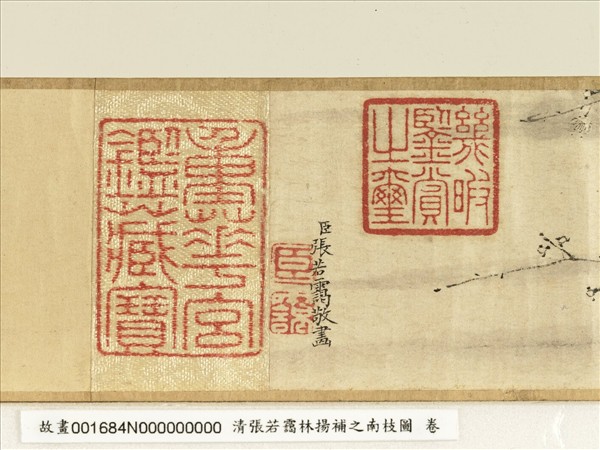 幾暇
鑒賞
之璽
臣張若靄敬畫
重華宮
鑑藏寶
故畫001684N000000000 清張若靄林揚補之南枝圖 卷